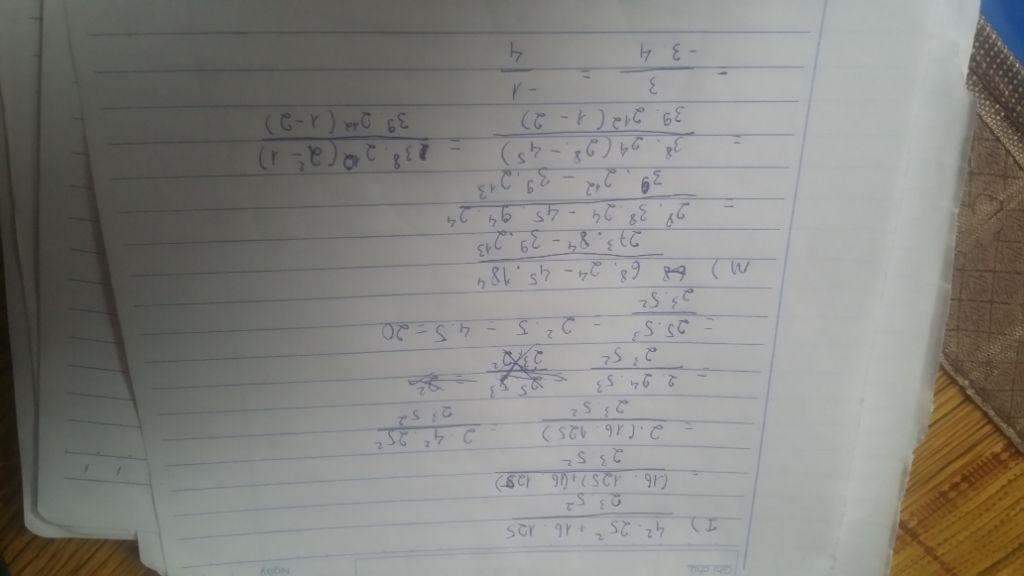 Ghi chú Ngày
I) 4².25² + 16.125
2³ 5²
= (16.125)+(16 125)
2³.5²
= 2.(16.125) = 2.4².25²
2³ 5² 2³ 5²
= 2.2⁴.5³
2³ 5²
= 2⁵.5³ = 2².5 = 4.5 = 20
2³.5²
M) 6⁸.2⁴ - 4⁵.18⁴
27³.8⁴ - 3⁹.2¹³
= 2⁸.3⁸.2⁴ - 4⁵.9⁴.2⁴
3⁹.2¹² - 3⁹.2¹³
= 3⁸.2⁴(2⁸ - 4⁵) = 3⁸.2¹²(2² - 1)
3⁹.2¹²(1 - 2) 3⁹.2¹²(1-2)
= 3 = -1
-3.4 4